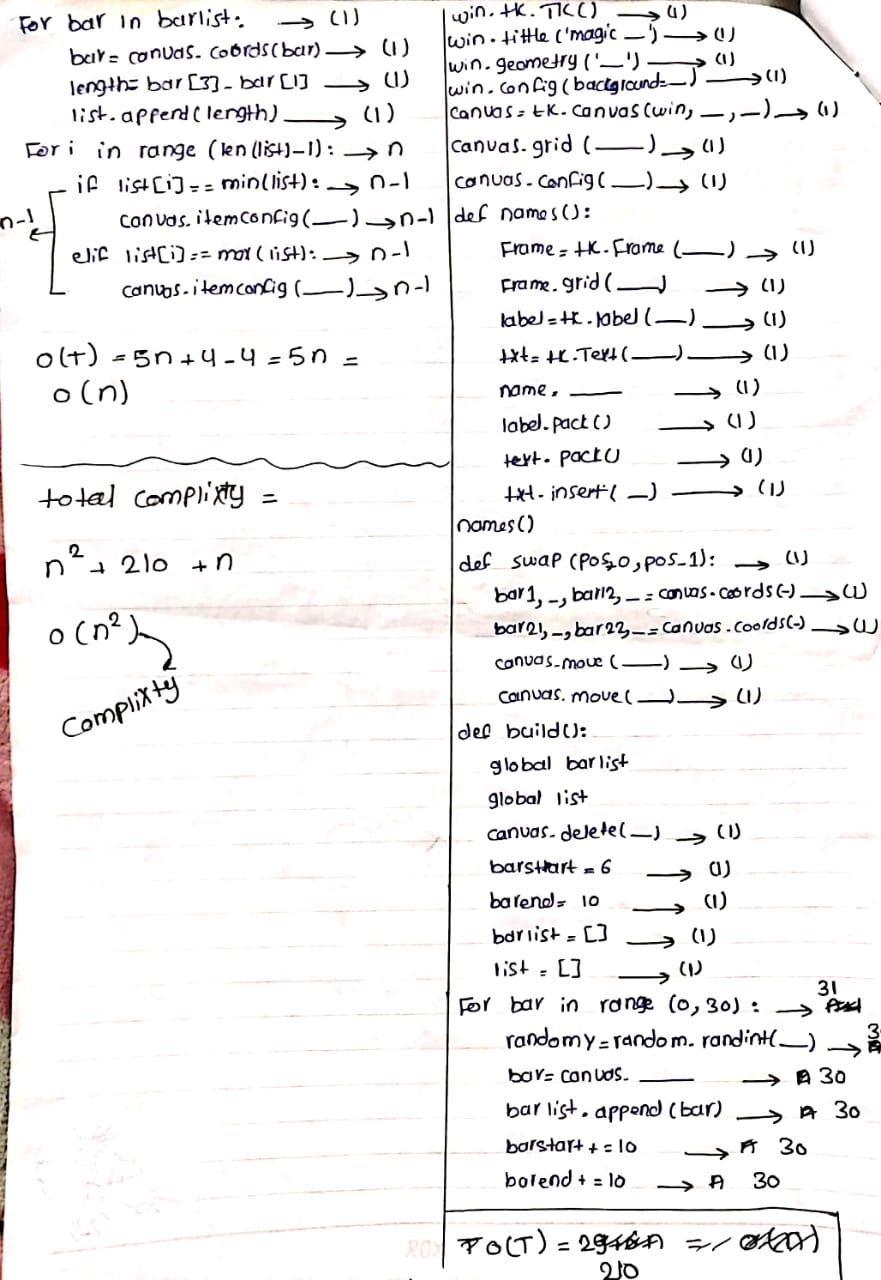 For bar in barlist: → (1)
bar = canvas. coords(bar) → (1)
length= bar [3] - bar [1] → (1)
list.append(length) → (1)
For i in range (len(list)-1): → n
if list[i] == min(list): → n-1
canvas.itemconfig(—) → n-1
n-1
elif list[i] == max(list): → n-1
canvas.itemconfig (—) → n-1
O(T) = 5n + 4 - 4 = 5n =
O(n)
total complixty =
n² + 210 + n
O(n²)
complixty
win. tk. TK() → (1)
win. tittle ('magic —') → (1)
win. geometry ('—') → (1)
win. config (background=—) → (1)
canvas = tk. canvas (win, —, —) → (1)
canvas. grid (—) → (1)
canvas. config (—) → (1)
def names():
Frame = tk. Frame (—) → (1)
Frame. grid (—) → (1)
label = tk. label (—) → (1)
txt = tk. Text (—) → (1)
name. — → (1)
label. pack () → (1)
text. pack() → (1)
txt. insert( —) → (1)
names()
def swap (pos_0, pos_1): → (1)
bar1, -, bar12, - = canvas. coords (-) → (1)
bar21, -, bar22, - = canvas. coords(-) → (1)
canvas.move (—) → (1)
canvas. move (—) → (1)
def build():
global barlist
global list
canvas. delete(—) → (1)
barstart = 6 → (1)
barend= 10 → (1)
barlist = [] → (1)
list = [] → (1)
For bar in range (0, 30) : → 31
randomy = random. randint(—) → 3
bar= canvas. — → 30
bar list. append (bar) → 30
barstart + = 10 → 30
barend + = 10 → 30
O(T) = 210